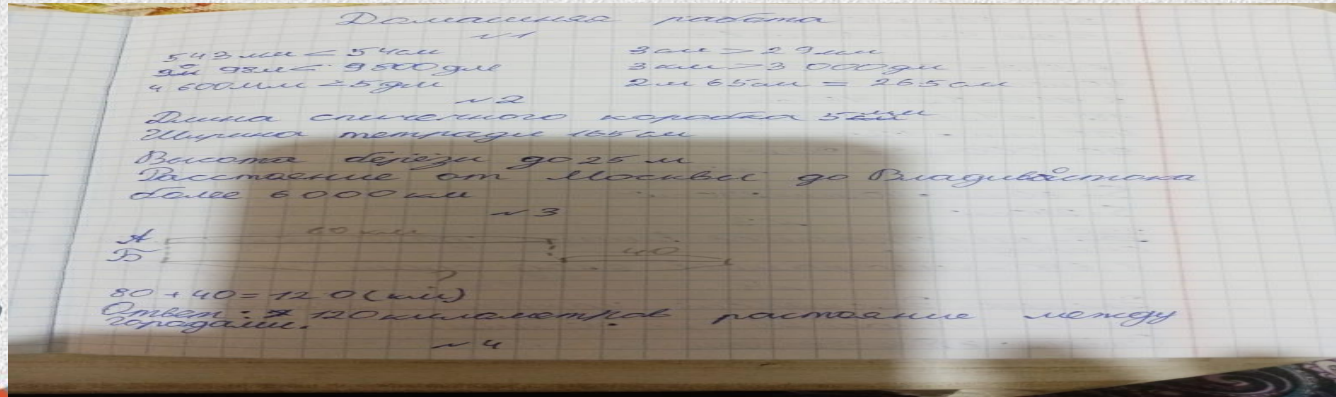 Домашняя работа
№1
543 мм < 54 см 3 см > 29 мм
98 м < 9 800 дм 3 км > 3 000 дм
4 600 мм = 5 дм 2 м 65 см = 265 см
№2
Длина спичечного коробка 5
Ширина тетради 165 см
Высота берёзы до 25 м
Расстояние от Москвы до Владивостока
более 6 000 км
№3
А 80 км
Б 40
?
80 + 40 = 120 (км)
Ответ: 120 километров растояние между
городами.
№4